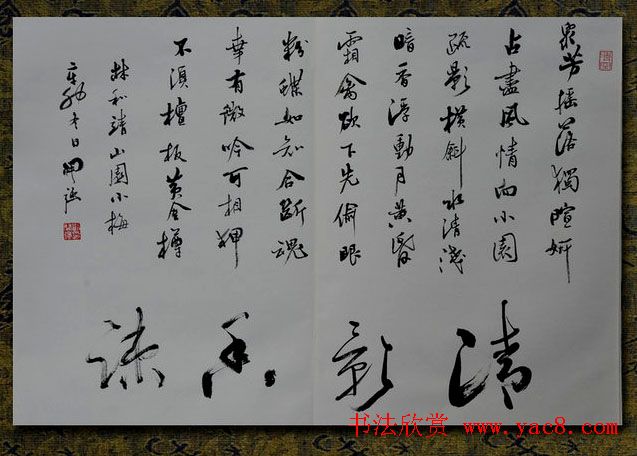 眾芳搖落獨暄妍
占盡風情向小園
疏影橫斜水清淺
暗香浮動月黃昏
霜禽欲下先偷眼
粉蝶如知合斷魂
幸有微吟可相狎
不須檀板共金樽
林和靖山園小梅
辛卯冬日
清影香疎
书法欣赏 www.yac8.com